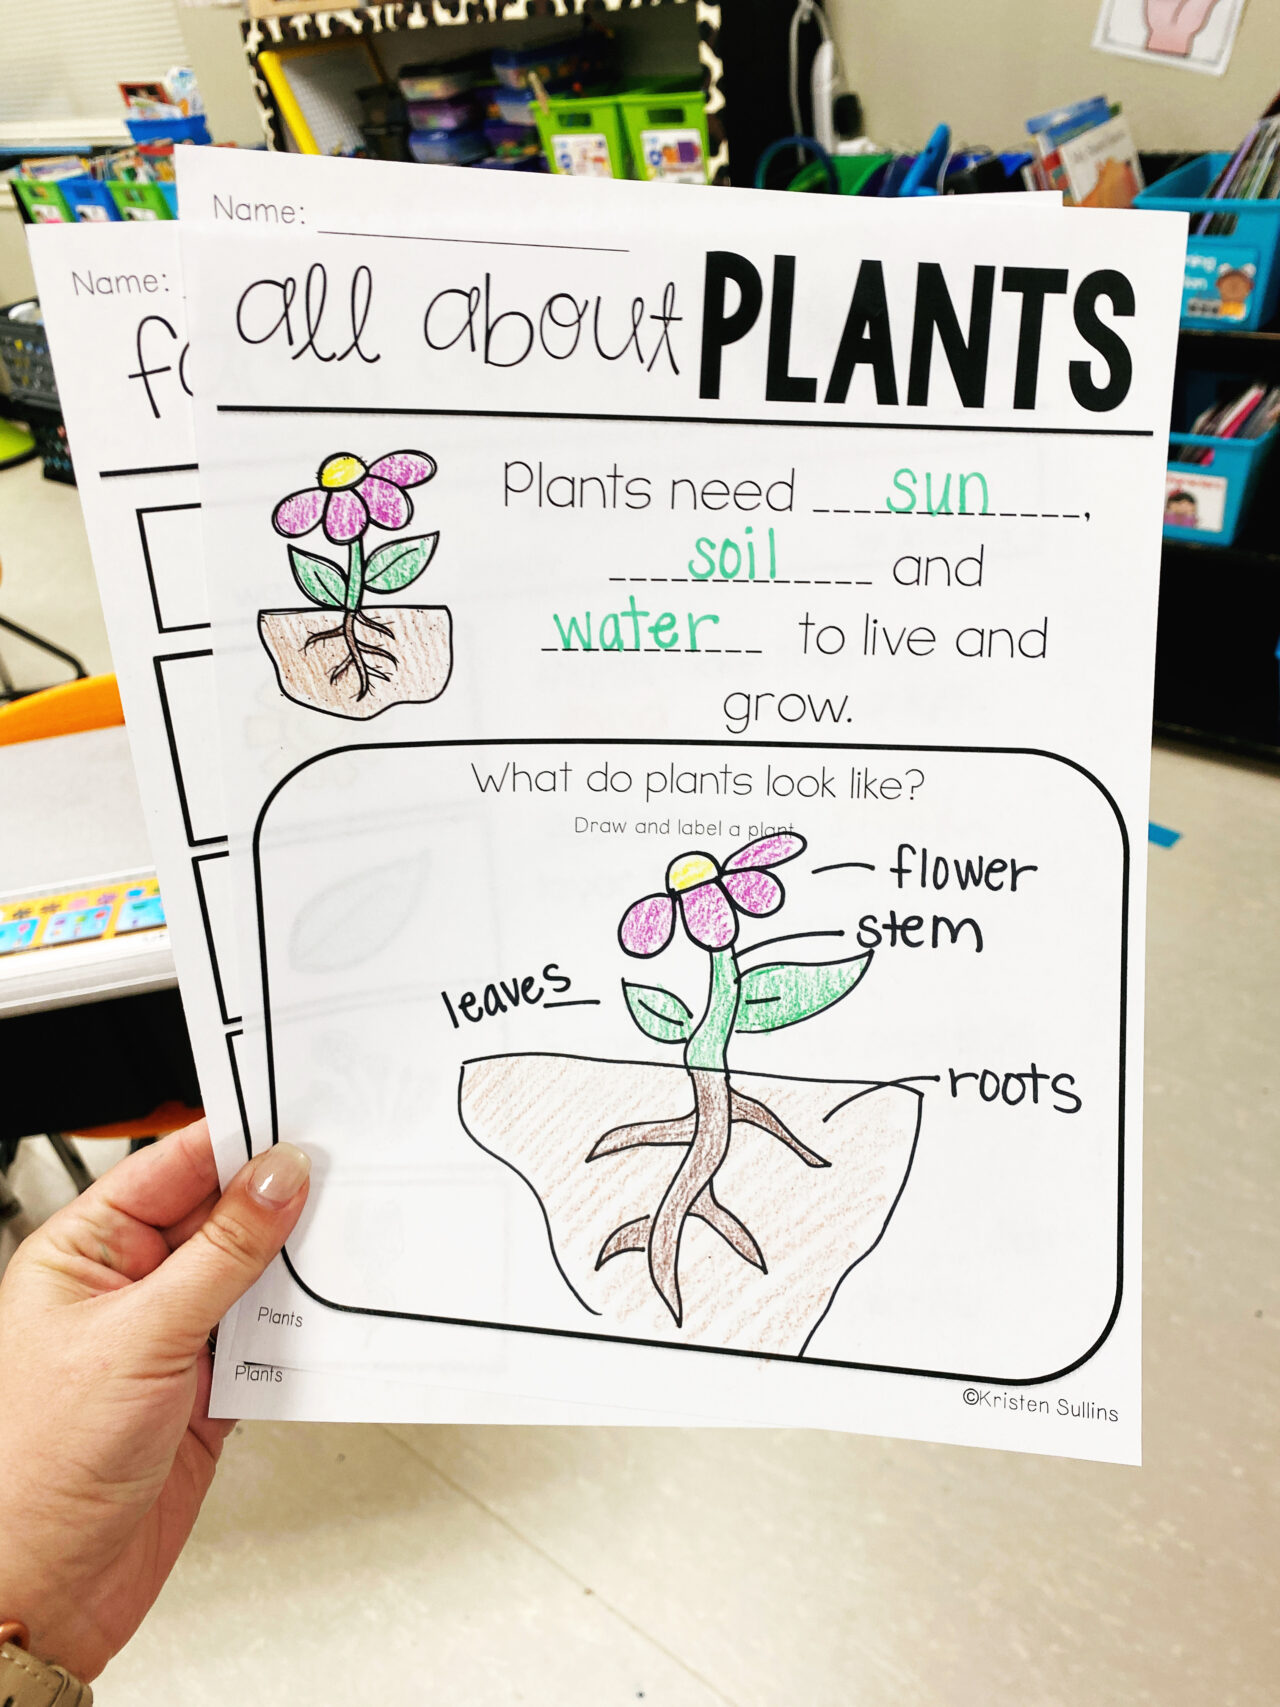 Name:
all about PLANTS
Plants need sun,
soil and
water to live and
grow.
What do plants look like?
Draw and label a plant.
flower
stem
leaves
roots
Plants
©Kristen Sullins
Name:
Plants